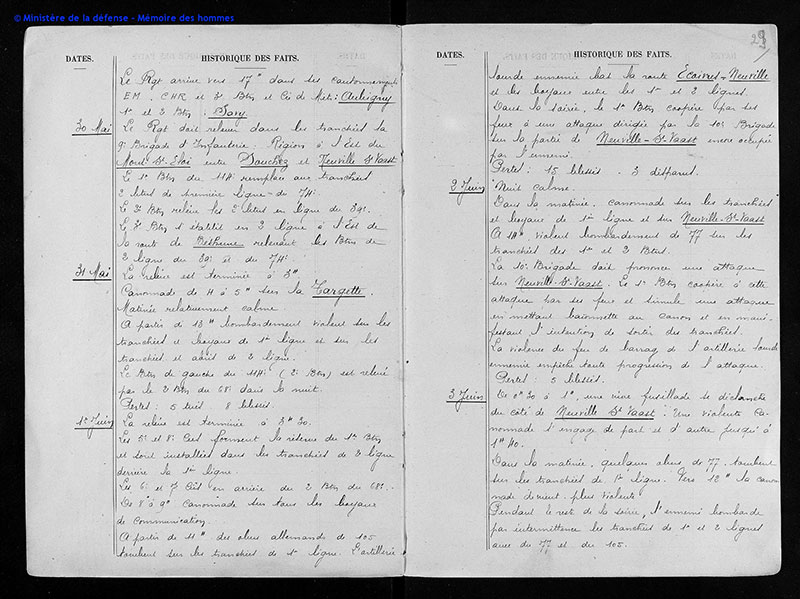 © Ministère de la défense - Mémoire des hommes
DATES.
HISTORIQUE DES FAITS.
Le Rgt arrive vers 17h dans ses cantonnements
EM. CHR et 3e Btn et Cie de Mitr: Aubigny
1er et 2 Btns: Savy.
30 Mai
Le Rgt doit relever dans les tranchées la
9e Brigade d'Infanterie: Région à l'Est du
Mont St Eloi entre Souchez et Neuville St Vaast
Le 1er Btn du 114 remplace aux tranchées
2 btns de première ligne du 74e
Le 2e Btn relève les 2 btns en ligne du 39e.
Le 3e Btn s'établit en 2e ligne à l'Est de
la route de Béthune relevant les Btns de
2e ligne du 39e et du 74e.
31 Mai
La relève est terminée à 3h
Canonnade de 4 à 5h sur la Targette.
Matinée relativement calme.
A partir de 13h bombardement violent sur les
tranchées et boyaux de 1re ligne et sur les
tranchées et abris de 2e ligne.
Le Btn de gauche du 114e (2e Btn) est relevé
par le 2 Btn du 68e dans la nuit.
Pertes: 5 tués 8 blessés.
1er Juin
La relève est terminée à 3h30.
Les 5e et 8e Cies forment la réserve du 1er Btn
et sont installées dans les tranchées de 2e ligne
derrière la 1re ligne.
Les 6e et 7e Cies en arrière du 2 Btn du 68e.
De 8h à 9h canonnade sur tous les boyaux
de communication.
A partir de 11h des obus allemands de 105
tombent sur les tranchées de 1re ligne. L'artillerie
DATES.
HISTORIQUE DES FAITS.
lourde ennemie bat la route Ecoivres-Neuville
et les boyaux entre les 1re et 2e lignes.
Dans la soirée, le 1er Btn coopère par ses
feux à une attaque dirigée par la 10e Brigade
sur la partie de Neuville-St-Vaast encore occupée
par l'ennemi.
Pertes: 15 blessés. 3 disparus.
2 Juin
Nuit calme.
Dans la matinée, canonnade sur les tranchées
et boyaux de 1re ligne et sur Neuville-St-Vaast
A 14h violent bombardement de 77 sur les
tranchées des 1er et 2 Btns.
La 10e Brigade doit prononcer une attaque
sur Neuville-St-Vaast. Le 1er Btn coopère à cette
attaque par ses feux et simule une attaque
en mettant baïonnette au canon et en mani-
festant l'intention de sortir des tranchées.
La violence du feu de barrage de l'artillerie lourde
ennemie empêche toute progression de l'attaque.
Pertes: 5 blessés.
3 Juin
De 0h30 à 1h, une vive fusillade se déclanche
du côté de Neuville St Vaast. Une violente ca-
nonnade s'engage de part et d'autre jusqu'à
1h40.
Dans la matinée, quelques obus de 77 tombent
sur les tranchées de 1re ligne. Vers 12h la canon-
nade devient plus violente.
Pendant le reste de la soirée, l'ennemi bombarde
par intermittence les tranchées de 1re et 2 lignes
avec du 77 et du 105.